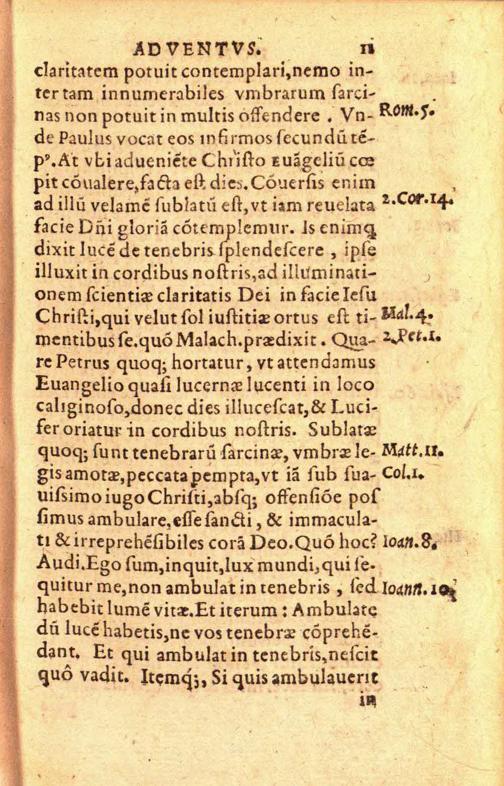 ADVENTVS. 11
claritatem potuit contemplari,nemo in-
ter tam innumerabiles vmbrarum sarci-
nas non potuit in multis offendere . Vn- Rom.5.
de Paulus vocat eos infirmos secundū tē-
pꝰ. At vbi adueniēte Christo Euāgeliū cœ
pit cōualere,facta est dies. Cōuersis enim
ad illū velamē sublatū est,vt iam reuelata 2.Cor.14.
facie Dñi gloriā cōtemplemur. Is enimq
dixit lucē de tenebris splendescere , ipse
illuxit in cordibus nostris,ad illuminati-
onem scientiæ claritatis Dei in facie Iesu
Christi,qui velut sol iustitiæ ortus est ti- Mal.4.
mentibus se.quō Malach.prædixit . Qua- 2.Pet.1.
re Petrus quoq; hortatur, vt attendamus
Euangelio quasi lucernæ lucenti in loco
caliginoso,donec dies illucescat,& Luci-
fer oriatur in cordibus nostris. Sublatæ
quoq; sunt tenebrarū sarcinæ, vmbræ le- Matt.11.
gis amotæ,peccata ꝑempta,vt iā sub sua- Col.1.
uissimo iugo Christi,absq; offensiōe pos
simus ambulare,esse sancti , & immacula-
ti & irreprehēsibiles corā Deo.Quō hoc? Ioan.8.
Audi.Ego sum,inquit,lux mundi,qui se-
quitur me,non ambulat in tenebris , sed Ioann.10.
habebit lumē vitæ.Et iterum : Ambulate
dū lucē habetis,ne vos tenebræ cōprehē-
dant. Et qui ambulat in tenebris,nescit
quô vadit. Itemq;, Si quis ambulauerit
in